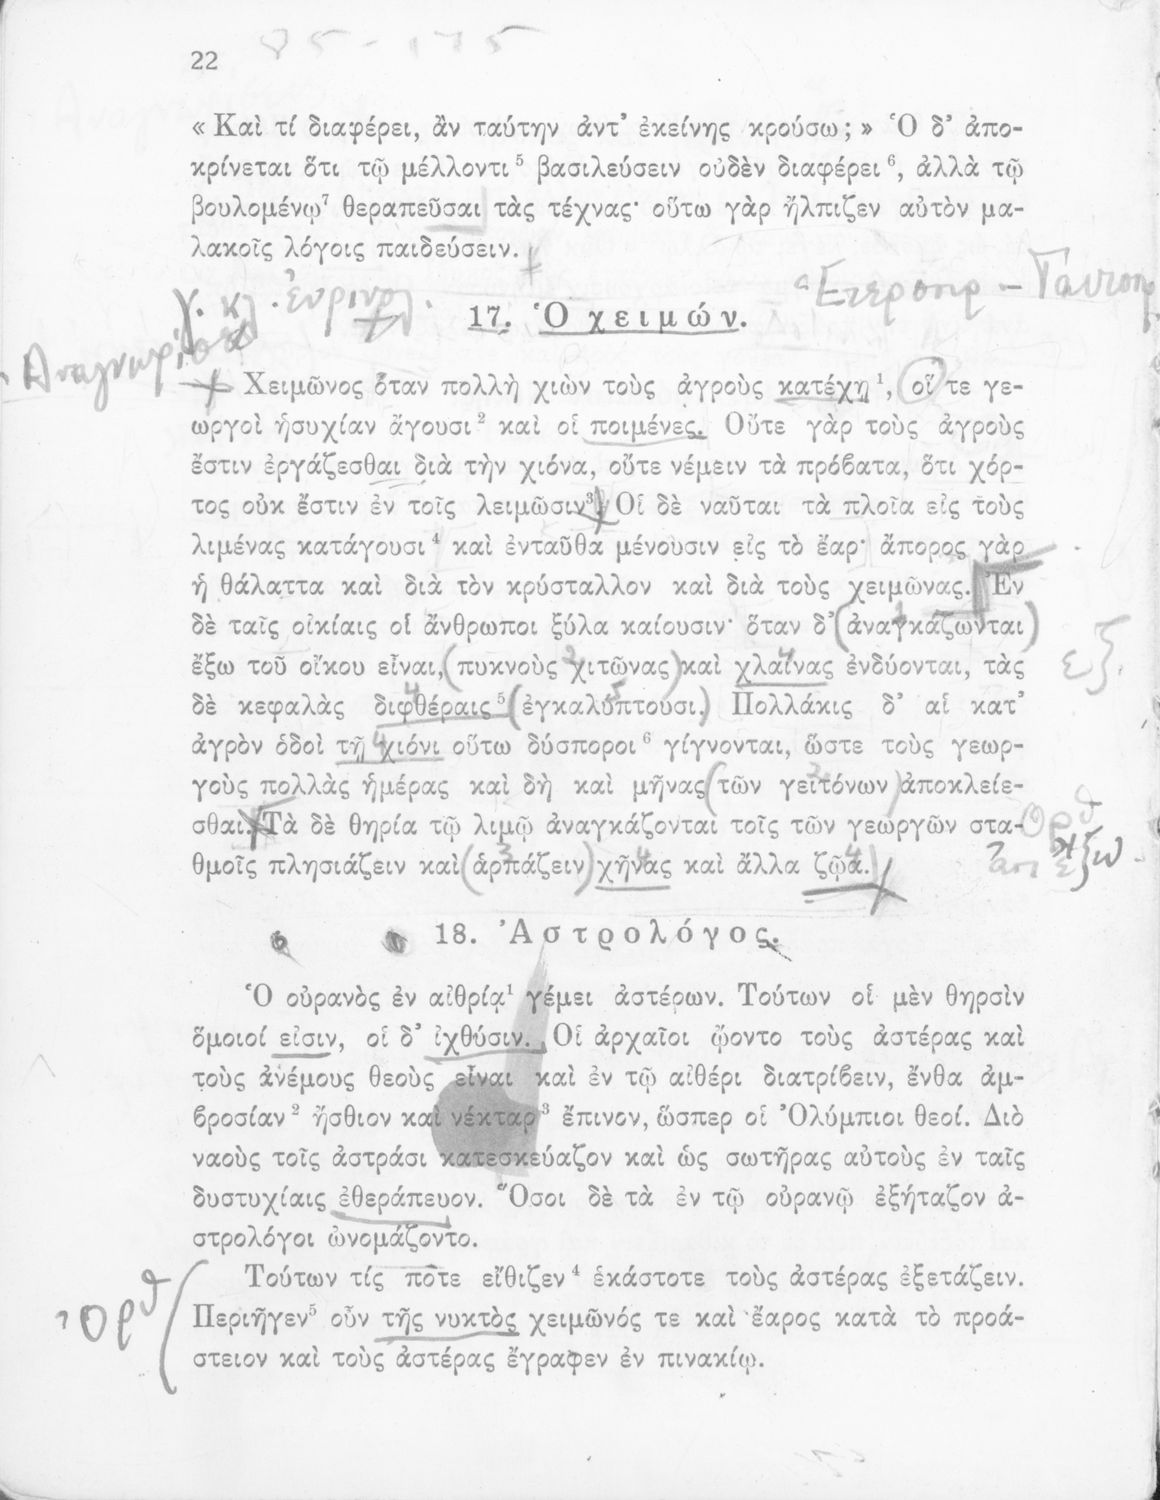 22
« Καὶ τί διαφέρει, ἂν ταύτην ἀντ’ ἐκείνης κρούσω; » Ὁ δ’ ἀπο-
κρίνεται ὅτι τῷ μέλλοντι ⁵ βασιλεύσειν οὐδὲν διαφέρει ⁶, ἀλλὰ τῷ
βουλομένῳ⁷ θεραπεῦσαι τὰς τέχνας· οὕτω γὰρ ἤλπιζεν αὐτὸν μα-
λακοῖς λόγοις παιδεύσειν.
17. Ὁ χειμών.
Χειμῶνος ὅταν πολλὴ χιὼν τοὺς ἀγροὺς κατέχῃ ¹, οἵ τε γε-
ωργοὶ ἡσυχίαν ἄγουσι ² καὶ οἱ ποιμένες. Οὔτε γὰρ τοὺς ἀγροὺς
ἔστιν ἐργάζεσθαι διὰ τὴν χιόνα, οὔτε νέμειν τὰ πρόβατα, ὅτι χόρ-
τος οὐκ ἔστιν ἐν τοῖς λειμῶσιν³. Οἱ δὲ ναῦται τὰ πλοῖα εἰς τοὺς
λιμένας κατάγουσι ⁴ καὶ ἐνταῦθα μένουσιν εἰς τὸ ἔαρ· ἄπορος γὰρ
ἡ θάλαττα καὶ διὰ τὸν κρύσταλλον καὶ διὰ τοὺς χειμῶνας. Ἐν
δὲ ταῖς οἰκίαις οἱ ἄνθρωποι ξύλα καίουσιν· ὅταν δ’ (ἀναγκάζωνται)
ἔξω τοῦ οἴκου εἶναι, (πυκνοὺς χιτῶνας) καὶ χλαίνας ἐνδύονται, τὰς
δὲ κεφαλὰς διφθέραις ⁵ (ἐγκαλύπτουσι.) Πολλάκις δ’ αἱ κατ’
ἀγρὸν ὁδοὶ τῇ χιόνι οὕτω δύσποροι ⁶ γίγνονται, ὥστε τοὺς γεωρ-
γοὺς πολλὰς ἡμέρας καὶ δὴ καὶ μῆνας (τῶν γειτόνων) ἀποκλείε-
σθαι. Τὰ δὲ θηρία τῷ λιμῷ ἀναγκάζονται τοῖς τῶν γεωργῶν στα-
θμοῖς πλησιάζειν καὶ (ἁρπάζειν) χῆνας καὶ ἄλλα ζῷα.
18. Ἀστρολόγος.
Ὁ οὐρανὸς ἐν αἰθρίᾳ¹ γέμει ἀστέρων. Τούτων οἱ μὲν θηρσὶν
ὅμοιοί εἰσιν, οἱ δ’ ἰχθύσιν. Οἱ ἀρχαῖοι ᾤοντο τοὺς ἀστέρας καὶ
τοὺς ἀνέμους θεοὺς εἶναι καὶ ἐν τῷ αἰθέρι διατρίβειν, ἔνθα ἀμ-
βροσίαν ² ἤσθιον καὶ νέκταρ ³ ἔπινον, ὥσπερ οἱ Ὀλύμπιοι θεοί. Διὸ
ναοὺς τοῖς ἀστράσι κατεσκεύαζον καὶ ὡς σωτῆρας αὐτοὺς ἐν ταῖς
δυστυχίαις ἐθεράπευον. Ὅσοι δὲ τὰ ἐν τῷ οὐρανῷ ἐξήταζον ἀ-
στρολόγοι ὠνομάζοντο.
Τούτων τίς ποτε εἴθιζεν ⁴ ἑκάστοτε τοὺς ἀστέρας ἐξετάζειν.
Περιῆγεν⁵ οὖν τῆς νυκτὸς χειμῶνός τε καὶ ἔαρος κατὰ τὸ προά-
στειον καὶ τοὺς ἀστέρας ἔγραφεν ἐν πινακίῳ.